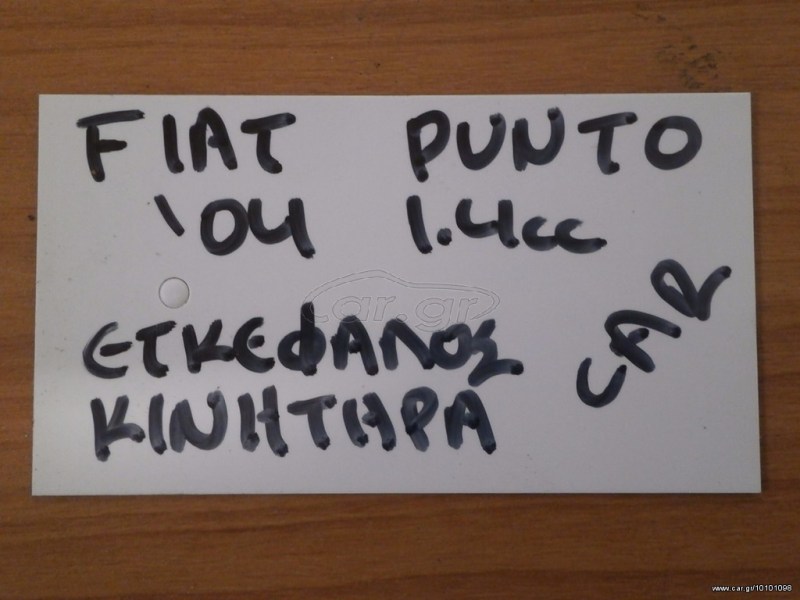 FIAT PUNTO
'04 1.4cc
ΕΓΚΕΦΑΛΟΣ
ΚΙΝΗΤΗΡΑ
CAR
car.gr
www.car.gr/10101098